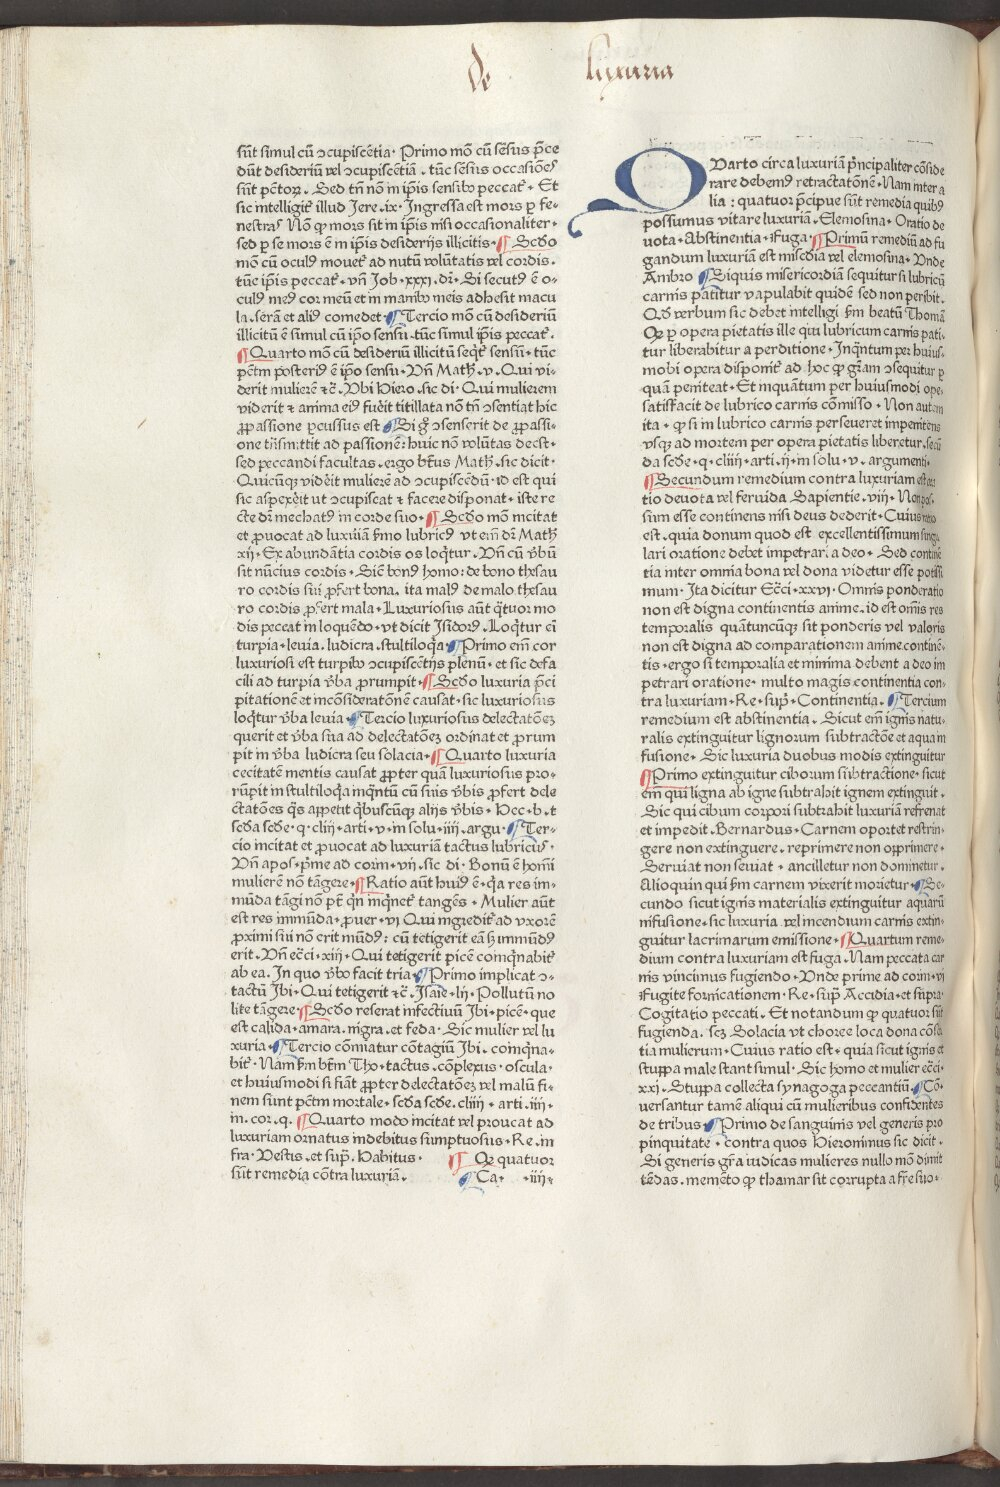 de luxuria
sūt simul cū ↄcupiscētia. Primo mō cū sēsus p̄ce
dūt desideriū vel ↄcupiscētiā. tūc sēsus occasiōes
sūt pētoꝝ. Sed tn̄ nō in ip̄is sensibꝰ peccat᷑. Et
sic intelligit᷑ illud Jere. ix. Ingressa est mors ꝑ fe-
nestras Nō ꝙ mors sit in ip̄is nisi occasionaliter.
sed ꝑ se mors ē in ip̄is desiderijs illicitis. ¶ Scd̄o
mō cū oculꝰ mouet᷑ ad nutū volūtatis vel cordis.
tūc ip̄is peccat᷑. vn̄ Job. xxxi. dr̄. Si secutꝰ ē o-
culꝰ meꝰ cor meū et in manibꝰ meis adhesit macu
la. serā et aliꝰ comedet. ¶ Tercio mō cū desideriū
illicitū ē simul cū ip̄o sensu. tūc simul ip̄is peccat᷑.
¶ Quarto mō cū desideriū illicitū seq̄t᷑ sensū. tūc
pctm̄ posteriꝰ ē ip̄o sensu. Vn̄ Math. v. Qui vi-
derit mulierē ⁊c̄. Vbi Hiero. sic di. Qui mulierem
viderit ⁊ anima eiꝰ fuerit titillata nō tn̄ ↄsentiat hic
ꝓpassione ꝑcussus est ¶ Si g̊ ↄsenserit de ꝓpassi-
one trāsmittit ad passionē: huic nō volūtas deest.
sed peccandi facultas. ergo btūs Math. sic dicit.
Quicūqꝫ viderit mulierē ad ↄcupiscēdū. id est qui
sic aspexerit ut ↄcupiscat ⁊ facere disponat. iste re
cte dr̄ mechatꝰ in corde suo. ¶ Scd̄o mō incitat
et ꝓuocat ad luxuriā ẜmo lubricꝰ vt em̄ dr̄ Math
xij. Ex abundātia cordis os loq̄tur. Vn̄ cū v̄bū
sit nūcius cordis. Sic̄ bonꝰ homo: de bono thesau
ro cordis sui ꝓfert bona. ita malꝰ de malo thesau
ro cordis ꝓfert mala. Luxuriosus aūt q̄tuor mo
dis peccat in loquēdo. vt dicit Isidorꝰ. Loq̄tur ei
turpia. leuia. ludicra. stultiloq̄a ¶ Primo em̄ cor
luxuriosi est turpibꝰ ↄcupiscētijs plenū. et sic defa
cili ad turpia v̄ba prumpit. ¶ Scd̄o luxuria p̄ci
pitationē et incōsideratōnē causat. sic luxuriosus
loq̄tur v̄ba leuia ¶ Tercio luxuriosus delectatōeꝫ
querit et v̄ba sua ad delectatōeꝫ ordinat et prorum
pit in v̄ba ludicra seu solacia. ¶ Quarto luxuria
cecitatē mentis causat ꝓpter quā luxuriosus pro-
rūpit in stultiloq̄a inq̄ntū cū suis v̄bis ꝓfert dele
ctatōes q̄s appetit q̄buscūqꝫ alijs v̄bis. Hec. b. t
scd̄a scd̄e. q. cliij. arti. v. in solu. iiij. argu. ¶ Ter-
cio incitat et ꝓuocat ad luxuriā tactus lubricus.
Vn̄ apos. p̄me ad corin. vij. sic di. Bonū ē homī
mulierē nō tāgere. ¶ Ratio aūt huiꝰ ē. q̄a res im-
mūda tāgi nō pt̄ qn̄ inq̄net᷑ tangēs. Mulier aūt
est res immūda. ꝓuer. vi Qui ingredit᷑ ad vxorē
ꝓximi sui nō erit mūdꝰ: cū tetigerit eā sꝫ immūdꝰ
erit. Vn̄ ecc̄i. xiij. Qui tetigerit picē comq̄nabit᷑
ab ea. In quo v̄bo facit tria. ¶ Primo implicat ↄ-
tactū Ibi. Qui tetigerit ⁊c̄. Isaie. lij. Pollutū no
lite tāgere. ¶ Scd̄o reserat infectiuū Ibi. picē. que
est calida. amara. nigra. et feda. Sic mulier vel lu
xuria. ¶ Tercio cōmiatur cōtagiū Ibi. comq̄na-
bit᷑. Nam ẜm btm̄ Tho. tactus. cōplexus. oscula.
et huiusmodi si fiāt ꝓpter delectatōeꝫ vel malū fi-
nem sunt pctm̄ mortale. scd̄a scd̄e. cliij. arti. iiij.
in. cor. q. ¶ Quarto modo incitat vel ꝓuocat ad
luxuriam ornatus indebitus sumptuosus. Re. in
fra. Vestis. et sup̄. Habitus. ¶ Qꝫ quatuor
sūt remedia cōtra luxuriā. ¶ Ca. iiij.
QVarto circa luxuriā p̄ncipaliter cōside
rare debemꝰ retractatōnē. Nam inter a
lia: quatuor p̄cipue sūt remedia quibꝰ
possumus vitare luxuriā. Elemosina. Oratio de
uota. Abstinentia. Fuga. ¶ Primū remediū ad fu
gandum luxuriā est miscd̄ia vel elemosina. Vnde
Ambro ¶ Siquis misericordiā sequitur si lubricū
carnis patitur vapulabit quidē sed non peribit.
Qd̄ verbum sic debet intelligi ẜm beatū Thomā
Qꝫ ꝑ opera pietatis ille qui lubricum carnis pati-
tur liberabitur a perditione. Inq̄ntum per huius-
modi opera disponit᷑ ad hoc ꝙ gr̄am ↄsequitur ꝑ
quā peniteat. Et inquātum per huiusmodi ope-
satisfacit de lubrico carnis cōmisso. Non autem
ita. ꝙ si in lubrico carnis perseueret impenitens
vsqꝫ ad mortem per opera pietatis liberetur. secū
da scd̄e. q. cliiij. arti. ij. in solu. v. argumenti.
¶ Secundum remedium contra luxuriam est ora
tio deuota vel feruida Sapientie. viij. Non pos
sum esse continens nisi deus dederit. Cuius ratio
est. quia donum quod est excellentissimum singu
lari oratione debet impetrari a deo. Sed continē
tia inter omnia bona vel dona videtur esse potissi
mum. Ita dicitur Ecc̄i. xxvi. Omnis ponderatio
non est digna continentis anime. id est om̄is res
temporalis quātuncūqꝫ sit ponderis vel valoris
non est digna ad comparationem anime. continē-
tis. ergo si temporalia et minima debent a deo im
petrari oratione. multo magis continentia con-
tra luxuriam. Re. sup̄. Continentia. ¶ Tercium
remedium est abstinentia. Sicut em̄ ignis natu-
ralis extinguitur lignorum subtractōe et aqua in
fusione. Sic luxuria duobus modis extinguitur
¶ Primo extinguitur ciborum subtractione. sicut
em̄ qui ligna ab igne subtrahit ignem extinguit.
Sic qui cibum corpori subtrahit luxuriā refrenat
et impedit. Bernardus. Carnem oportet restrin-
gere non extinguere. reprimere non opprimere.
Seruiat non seuiat. ancilletur non dominetur.
Alioquin qui ẜm carnem vixerit morietur. ¶ Se-
cundo sicut ignis materialis extinguitur aquarū
infusione. sic luxuria vel incendium carnis extin-
guitur lacrimarum emissione. ¶ Quartum reme-
dium contra luxuriam est fuga. Nam peccata car
nis vincimus fugiendo. Vnde prime ad corin. vi
Fugite fornicationem. Re. sup̄ Accidia. et supra
Cogitatio peccati. Et notandum ꝙ quatuor sūt
fugienda. scꝫ Solacia vt choree loca dona cōsor
tia mulierum. Cuius ratio est. quia sicut ignis et
stuppa male stant simul. Sic homo et mulier ecc̄i.
xxi. Stuppa collecta synagoga peccantiū. ¶ Cō-
versantur tamē aliqui cū mulieribus confidentes
de tribus. ¶ Primo de sanguinis vel generis pro
pinquitate. contra quos Hieronimus sic dicit.
Si generis gr̄a iudicas mulieres nullo mō dimit
tēdas. memēto ꝙ thamar sit corrupta a fr̄e suo.